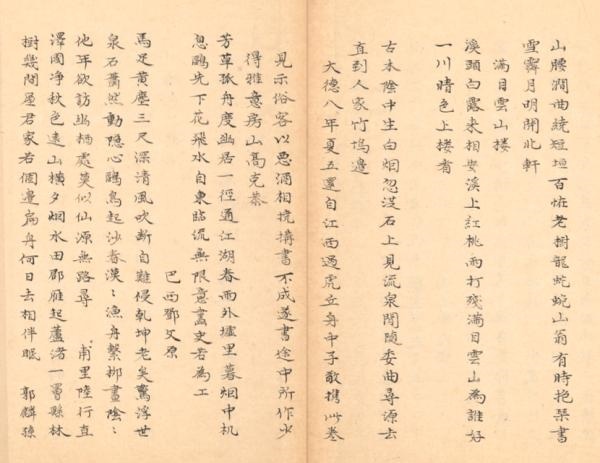 山腰澗曲繞短垣百怪老樹龍蛇蜿山翁有時抱琴書
雪霽月明開北軒
滿目雲山樓
溪頭白鷺來相安溪上紅桃雨打殘滿目雲山為誰好
一川晴色上樓看
古木陰中生白烟忽從石上見流泉閒隨委曲尋源去
直到人家竹塢邊
大德八年夏五還自江西過虎丘舟中子敬携此卷
見示俗客以惡酒相撓搆書不成遂書途中所作少
得雅意房山高克恭
芳草孤舟度幽居一徑通江湖春雨外墟里暮烟中机
息鷗先下花飛水自東臨流無限意畫史若為工
巴西鄧文原
馬足黃塵三尺深清風吹斷自難侵乾坤老矣驚浮世
泉石蕭然動隱心鷗鳥起沙春漠〻漁舟繫柳晝陰〻
他年欲訪幽栖處莫似仙源無路尋　甫里陸行直
澤國净秋色遠山橫夕烟水田郡雁起蘆渚一罾縣林
樹幾間屋君家若個邊扁舟何日去相伴眠　郭麟孫